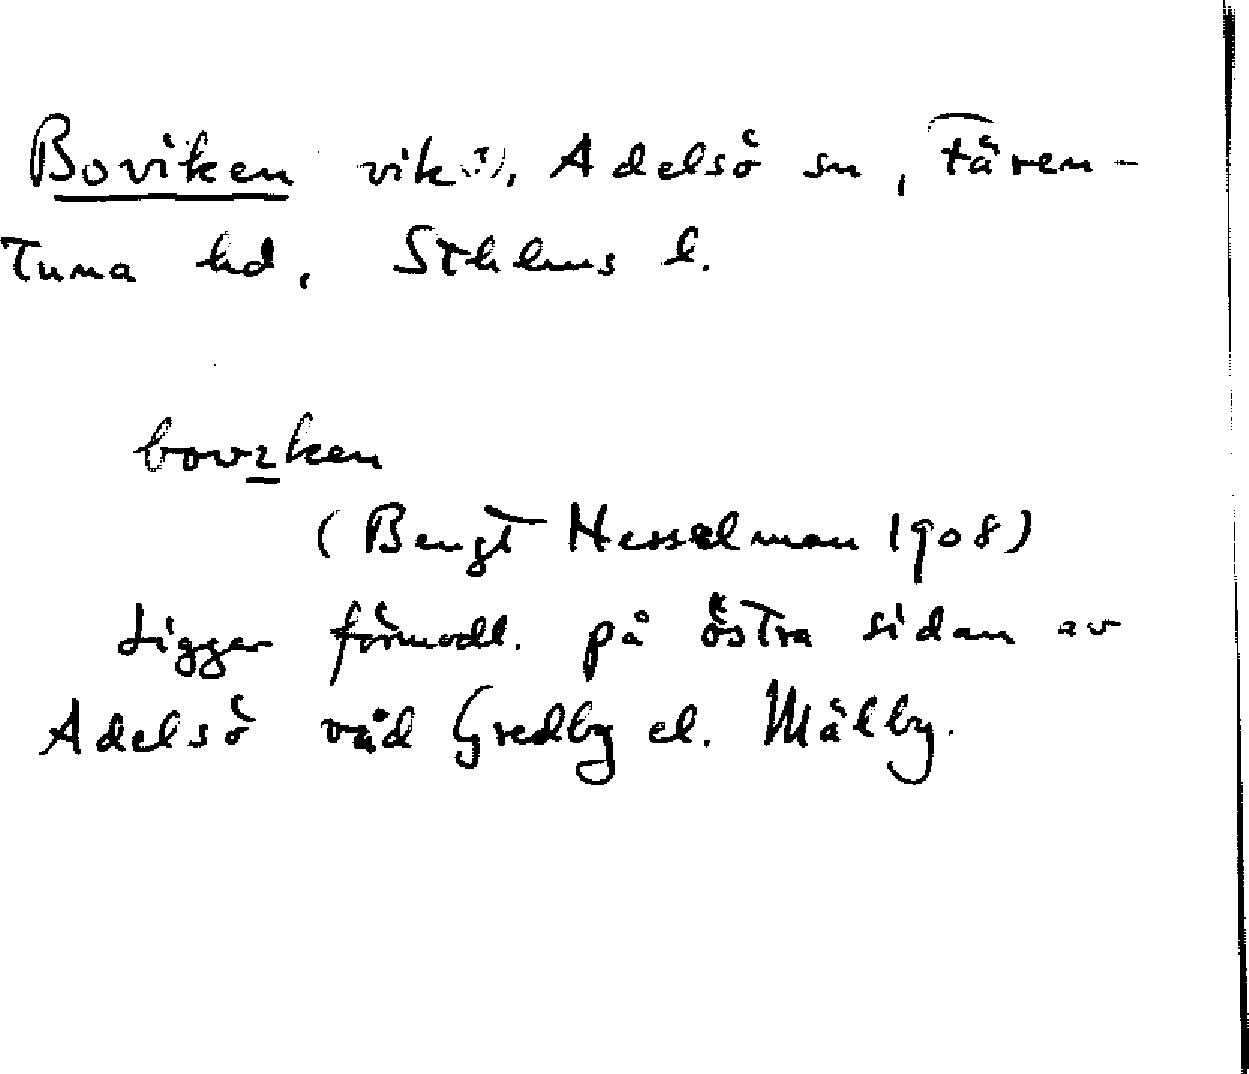 Boviken vik(?), Adelsö sn, Fären-
tuna hd, Sthlms l.
bovıken
(Bengt Hesselman 1908)
Ligger förmodl. på östra sidan av
Adelsö vid Gredby el. Mälby.